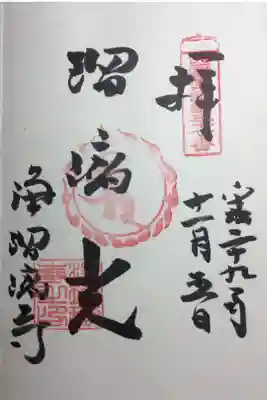 奉拝
平成二十九年
十一月五日
瑠璃光
浄瑠璃寺